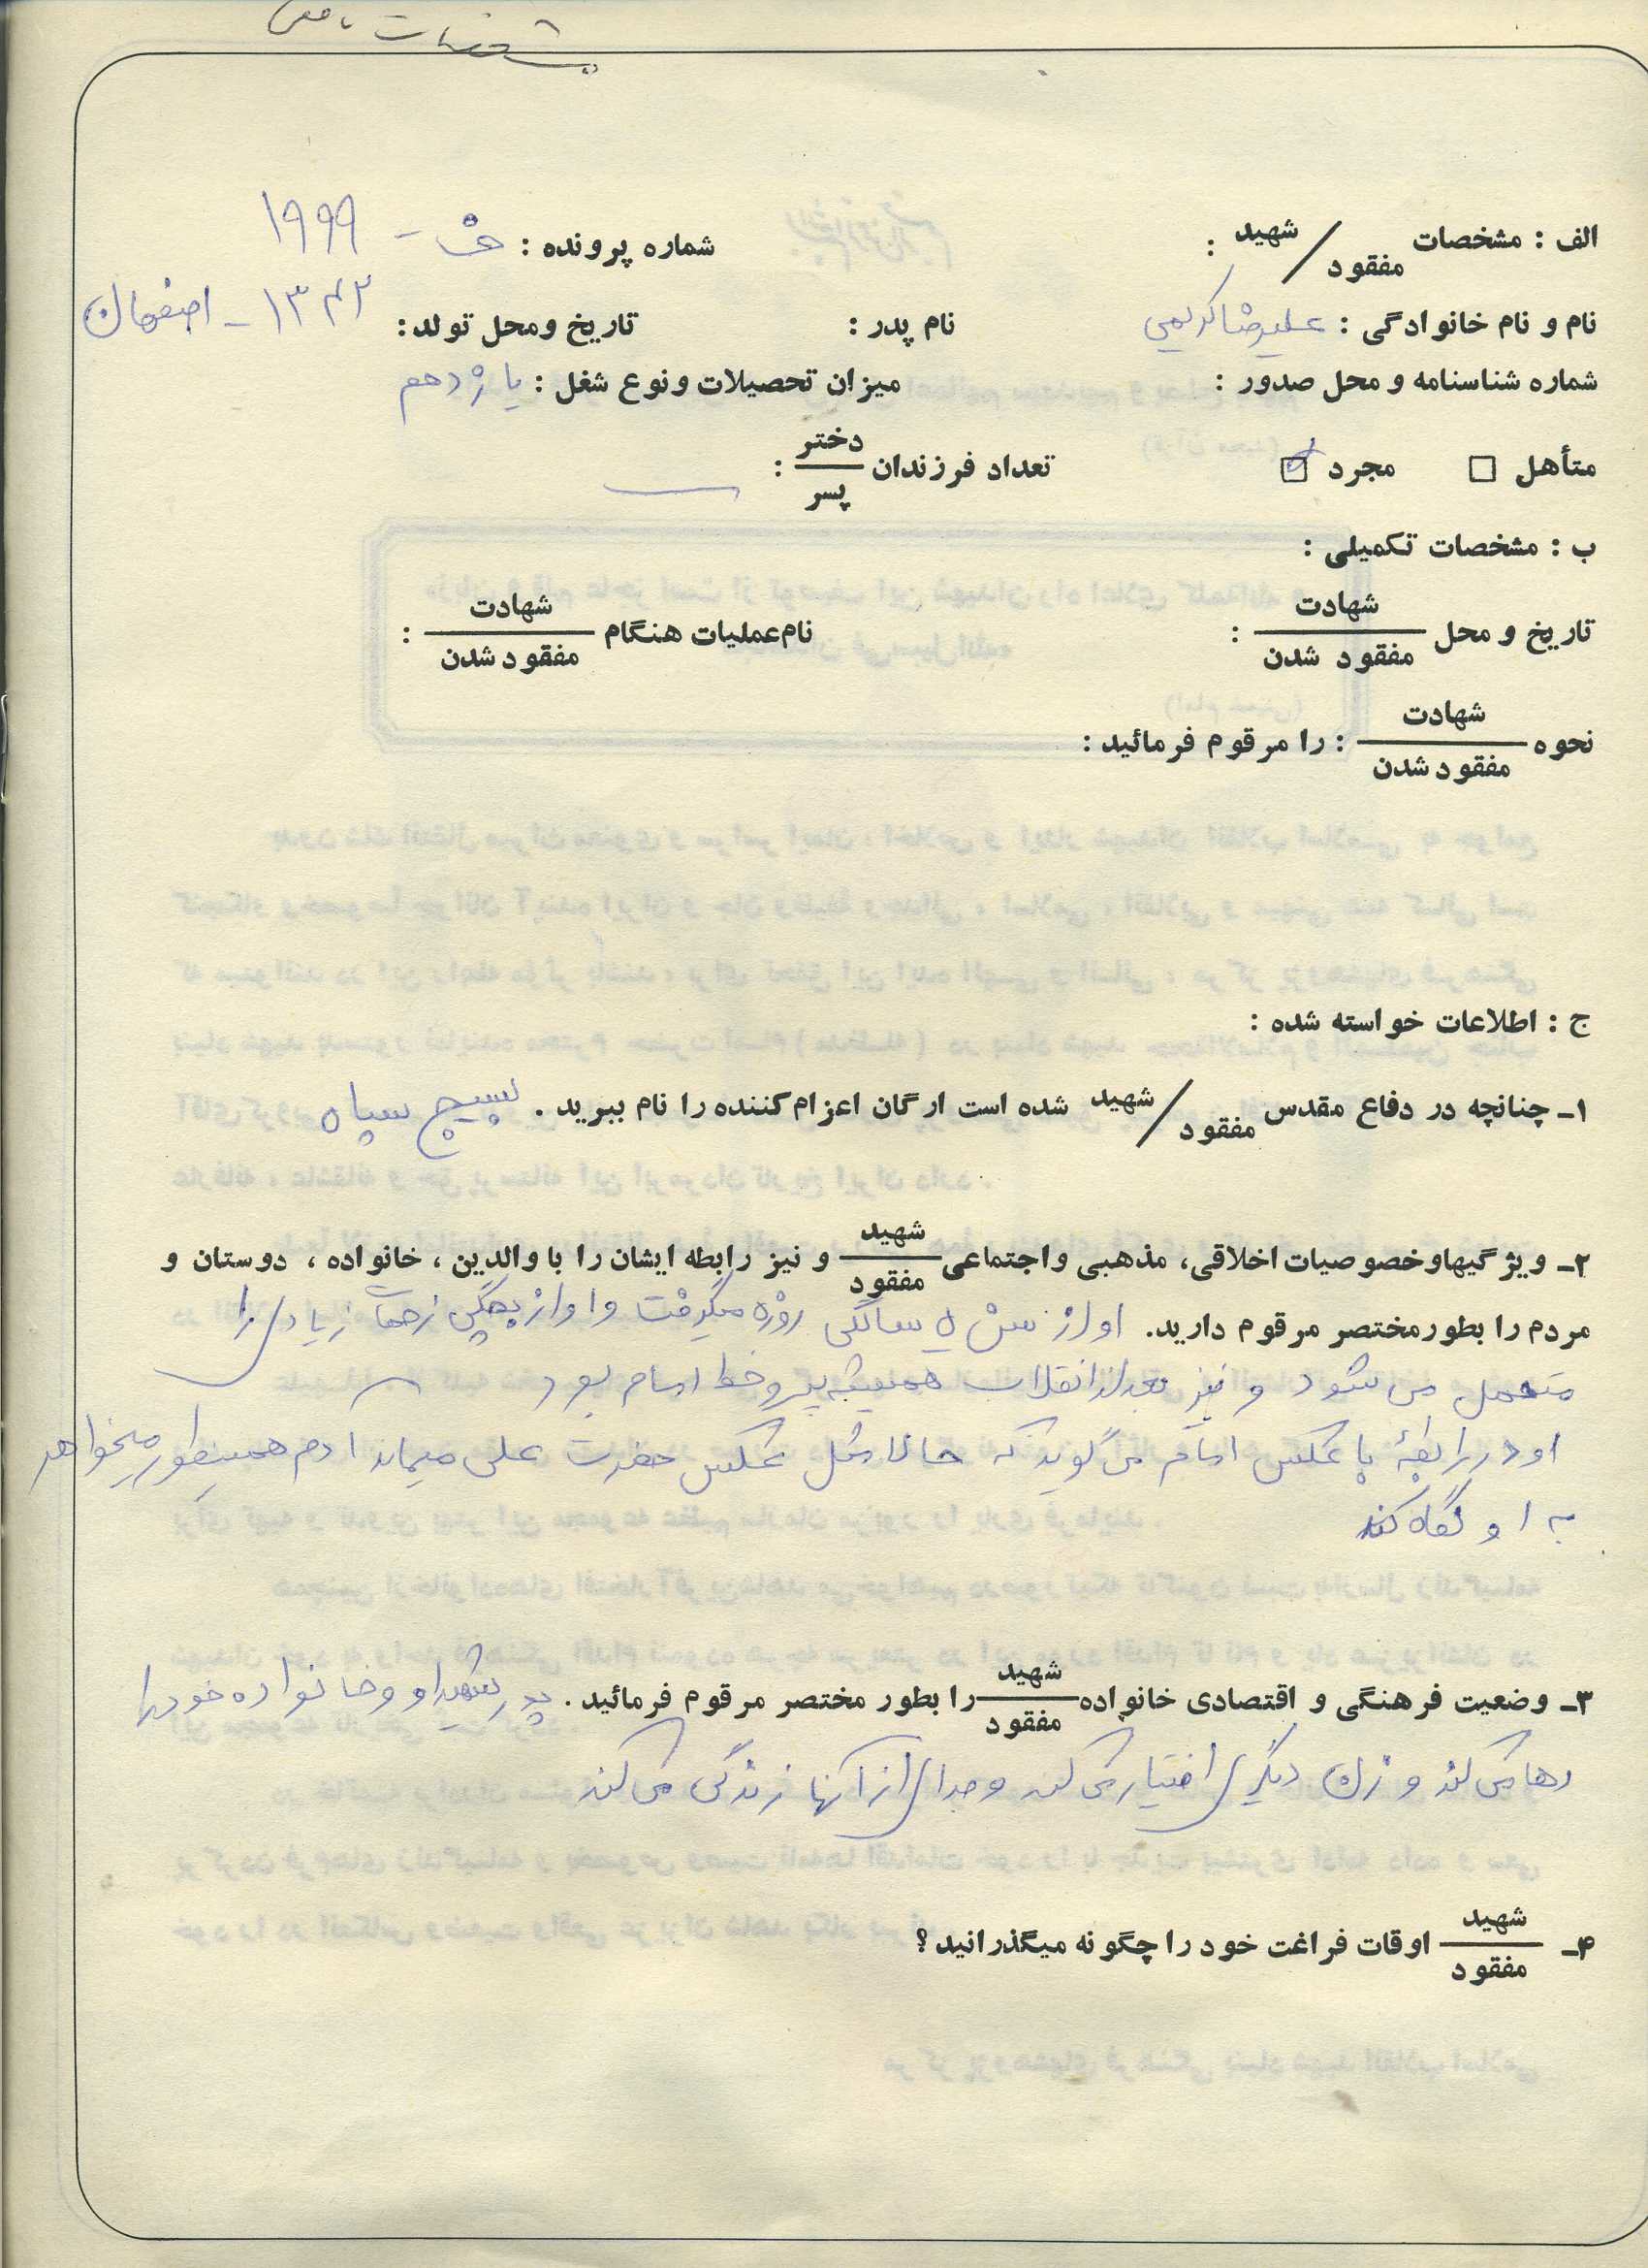 مشخصات ناقص
الف : مشخصات شهید / مفقود : شماره پرونده : ف - ۱۹۹۹
نام و نام خانوادگی : علیرضا کریمی نام پدر : تاریخ ومحل تولد: ۱۳۴۲ - اصفهان
شماره شناسنامه و محل صدور : میزان تحصیلات ونوع شغل : یازدهم
متأهل □ مجرد ☑ تعداد فرزندان دختر / پسر : —
ب : مشخصات تکمیلی :
تاریخ و محل شهادت / مفقود شدن : نام عملیات هنگام شهادت / مفقود شدن :
نحوه شهادت / مفقود شدن : را مرقوم فرمائید :
ج : اطلاعات خواسته شده :
۱ـ چنانچه در دفاع مقدس شهید / مفقود شده است ارگان اعزام کننده را نام ببرید . بسیج سپاه
۲ـ ویژگیهاوخصوصیات اخلاقی، مذهبی واجتماعی شهید / مفقود و نیز رابطه ایشان را با والدین ، خانواده ، دوستان و
مردم را بطورمختصر مرقوم دارید. او از سن ۵ سالگی روزه میگرفت و او از بچگی زحمات زیادی را
متحمل می شود و نیز بعد از انقلاب همیشه پیرو خط امام بود
او در رابطهٔ با عکس امام می گوید که حالا مثل عکس حضرت علی میماند ادم همینطور میخواهد
به او نگاه کند
۳ـ وضعیت فرهنگی و اقتصادی خانواده شهید / مفقود را بطور مختصر مرقوم فرمائید . پدر شهید او و خانواده خود را
رها می کند و زن دیگری اختیار می کند و جدای از آنها زندگی می کند
۴ـ شهید / مفقود اوقات فراغت خود را چگونه میگذرانید ؟